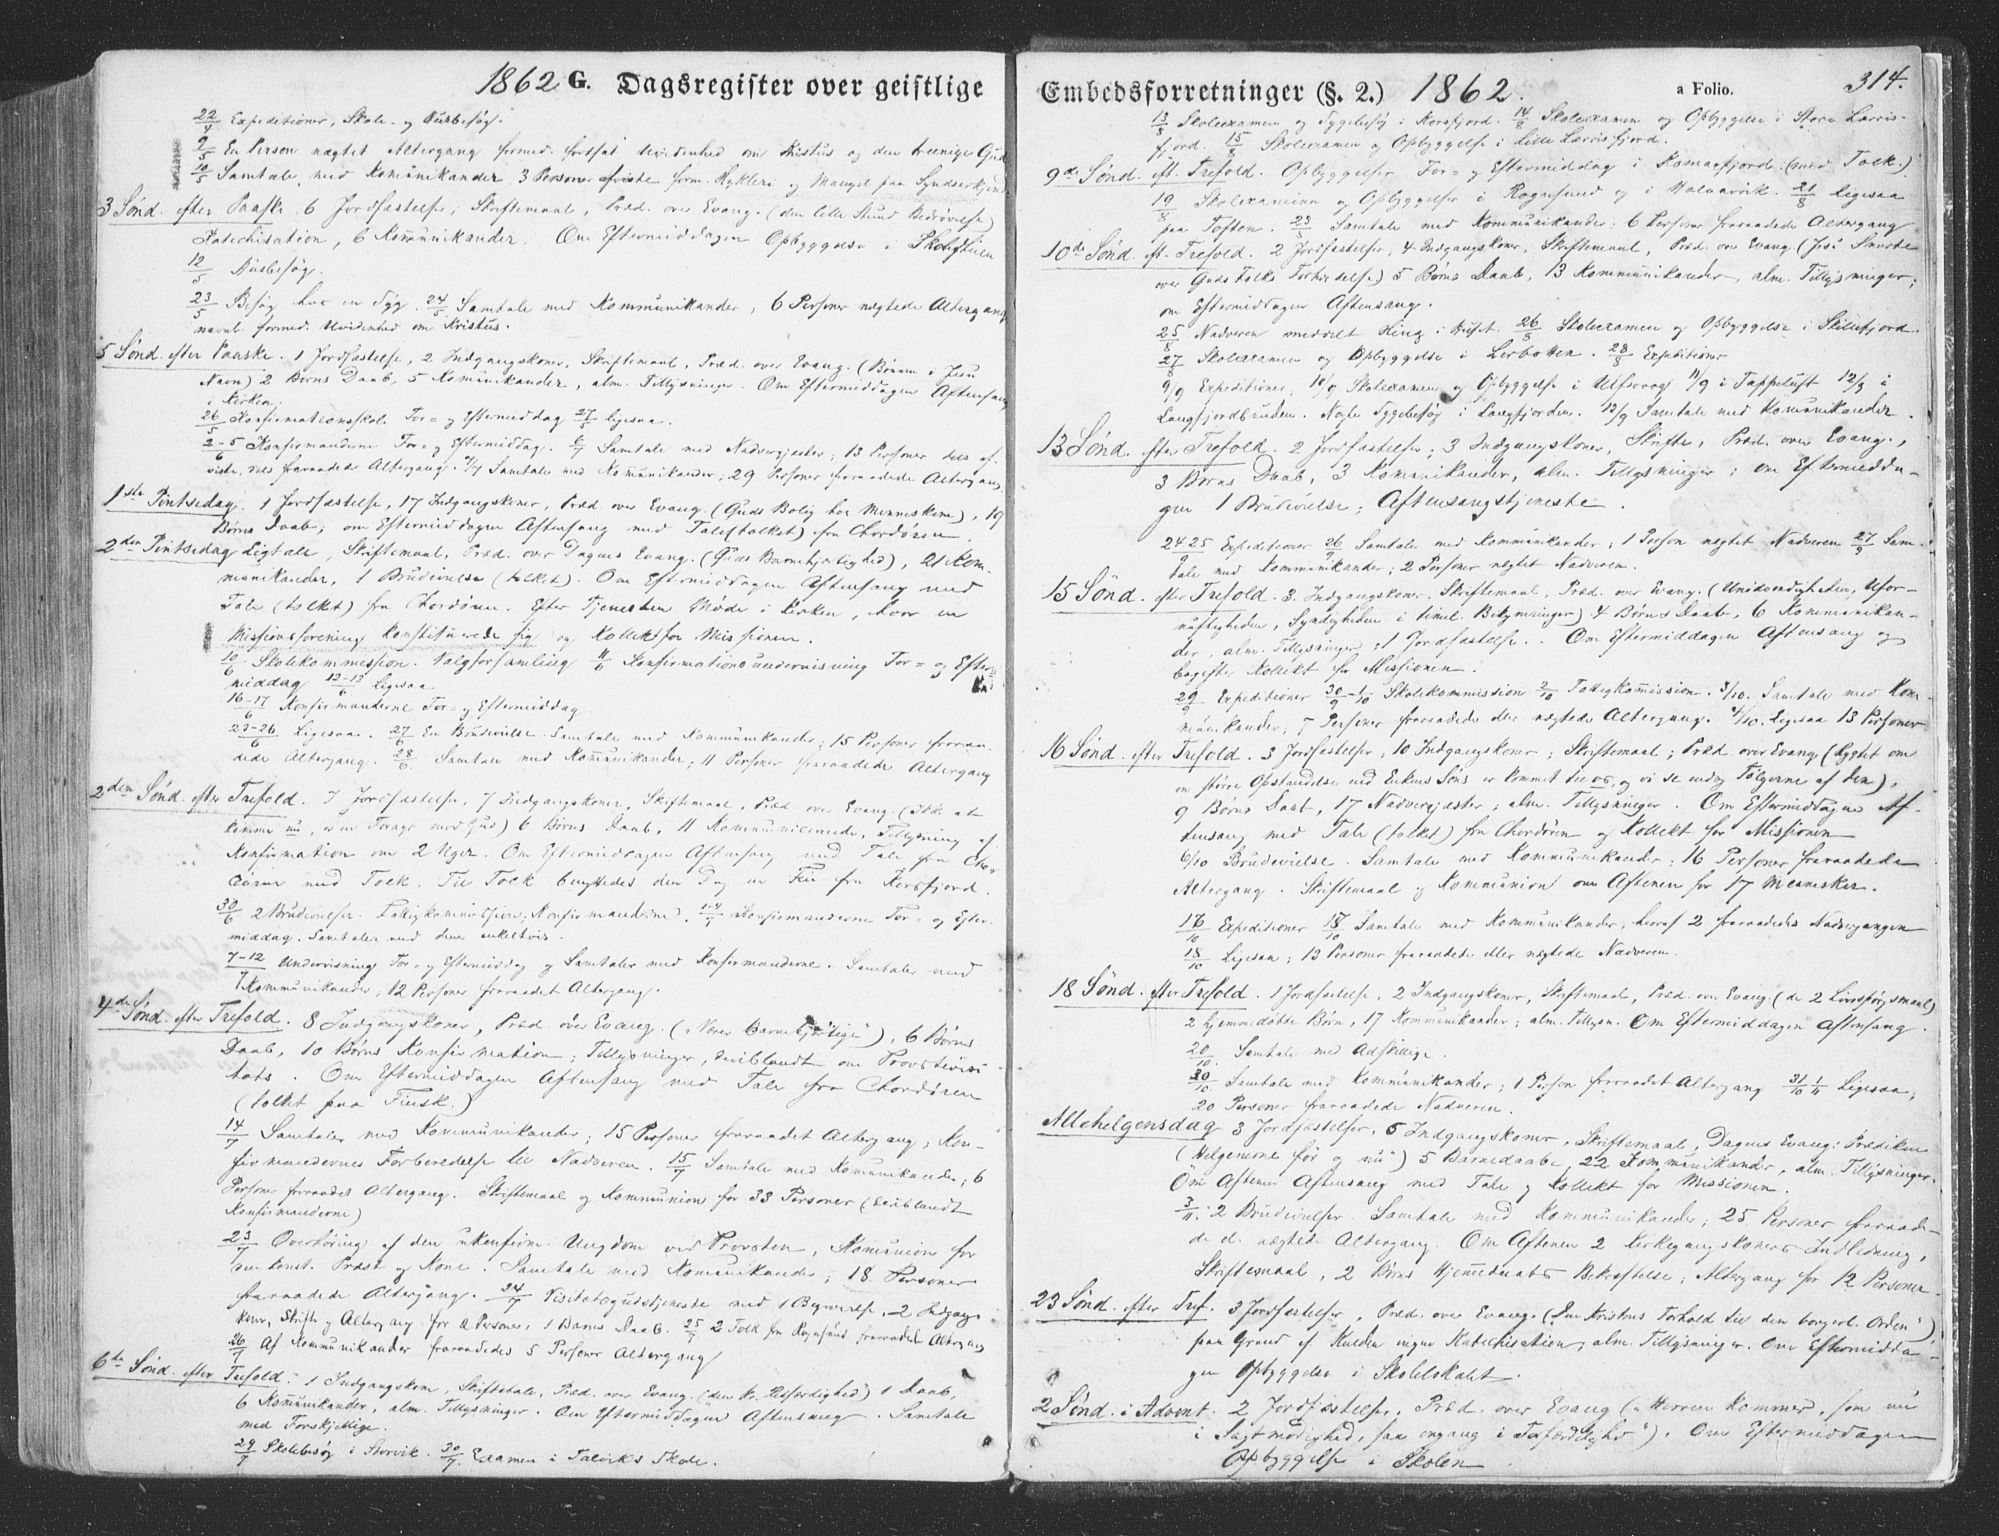 1862 G. Dagsregister over geistlige
22/4 Expeditioner, Skole- og Husbesøg.
9/5 En Person nægtet Altergang formed. fortsat Uvidenhed om Kristus og den treenige Gud
10/5 Samtale med Komunikander 3 Personer afviste form. Hykleri og Mangel paa Syndserkjend
3 Sønd. efter Paaske. 6 Jordfæstelse, Skriftemaal, Præd. over Evang. (den lille Stund Bedrøvelse)
Katechisation, 6 Kommunikander. Om Eftermiddagen Opbyggelse i Skolestuen
12/5 Husbesøg.
23/5 Besøg hos en Syg. 24/5 Samtale med Kommunikander, 6 Personer nægtede Altergang
navnl. formed. Uvidenhed om Kristus.
5 Sønd. efter Paaske. 1 Jordfæstelse, 2 Indgangskoner, Skriftemaal, Præd. over Evang. (Bønnen i Jesu
Navn) 2 Børns Daab, 5 Komunikander, alm. Tillysninger. Om Eftermiddagen Aftensang
i Kirken.
26/5 Konfirmationsskole For- og Eftermiddag 27/5 ligesaa.
2-5/6 Konfirmanderne For- og Eftermiddag. 6/7 Samtale med Nadvergjæster; 13 Personer dels af-
viste, dels fraraadet Altergang. 7/7 Samtale med Kommunikander; 29 Personer fraraadede Altergang
1ste Pintsedag. 1 Jordfæstelse, 17 Indgangskoner, Præd. over Evang. (Guds Bolig hos Menneskene), 19
Børns Daab; om Eftermiddagen Aftensang med Tale (tolket) fra Chordøren.
2den Pintsedag Ligtale, Skriftemaal, Præd. over Dagens Evang. (Guds Barmhjertighed), 21 Kom-
munikander, 1 Brudevielse (tolket). Om Eftermiddagen Aftensang med
Tale (tolket) fra Chordøren. Efter Tjenesten Møde i Kirken, hvor en
Missionsforening konstituerede sig og Kollekt for Missionen.
10/6 Skolekommission. Valgforsamling 11/6 Konfirmationsundervisning For- og Efter
middag 12-13/6 ligesaa
16-17/6 Konfirmanderne For- og Eftermiddag
23-26/6 Ligesaa. 27/6 En Brudevielse. Samtale med Kommunikander; 15 Personer fraraa-
dede Altergang. 28/6 Samtale med Kommunikander; 11 Personer fraraadede Altergang
2den Sønd. efter Trefold. 7 Jordfæstelse, 7 Indgangskoner, Skriftemaal, Præd. over Evang. (Ikke at
komme nu, er en Foragt mod Gud) 6 Børns Daab, 11 Kommunicerende, Tillysning af
Konfirmation om 2 Uger. Om Eftermiddagen Aftensang med Tale fra Chor
døren med Tolk. Til Tolk benyttedes den Dag en Fin fra Korsfjord.
30/6 2 Brudevielser. Fattigkommission; Konfirmanderne. 1-4/7 Konfirmanderne For- og Efter-
middag. Samtaler med dem enkeltvis.
7-12/7 Undervisning For- og Eftermiddag og Samtaler med Konfirmanderne. Samtaler med
Kommunikander; 12 Personer fraraadet Altergang.
4de Sønd. efter Trefold. 8 Indgangskoner, Præd. over Evang. ("Værer Barmhjertige"), 6 Børns
Daab, 10 Børns Konfirmation; Tillysninger, deriblandt om Provstevisi
tats. Om Eftermiddagen Aftensang med Tale fra Chordøren
(tolket paa Finsk.)
14/7 Samtaler med Kommunikander; 15 Personer fraraadet Altergang; Kon-
firmandernes Forberedelse til Nadveren. 15/7 Samtale med Komunikander; 6
Personer fraraadet Altergang. Skriftemaal og Kommunion for 33 Personer (deriblandt
Konfirmanderne)
23/7 Overhøring af den ukonfirm. Ungdom ved Provsten, Komunion for
const. Præst og Kone. Samtale med Komunikander; 18 Personer
fraraadede Altergang. 24/7 Visitatsgudstjeneste med 1 Begravelse, 2 Indgangs
koner, Skrifte og Altergang for 2 Personer, 1 Barns Daab. 25/7 2 Folk fra Rognsund fraraadede Altergang
26/7 Af Kommunikander fraraadedes 5 Personer Altergang
6te Sønd. efter Trefold. 1 Indgangskone, Skriftetale, Præd. over Evang. (den sr. Retfærdighed) 1 Daab,
6 Kommunikander, alm. Tillysninger. Om Eftermiddagen Aftensang. Samtale
med Forskjellige.
29/7 Skolebesøg i Storvik. 30/7 Examen i Talviks Skole.
Embedsforretninger (§. 2.) 1862.
a Folio. 314.
13/8 Skoleexamen og Sygebesøg i Korsfjord. 14/8 Skoleexamen og Opbyggelse i Store Lerris-
fjord. 15/8 Skoleexamen og Opbyggelse i Lille Lerrisfjord.
9de Sønd. eft. Trefold. Opbyggelser For- og Eftermiddag i Komagfjord. (med Tolk.)
19/8 Skoleexamen og Opbyggelse i Rognsund og i Halvarvik. 21/8 Ligesaa
paa Toften. 23/8 Samtale med Kommunikander; 6 Personer fraraadede Altergang
10de Sønd. eft. Trefold. 2 Jordfæstelser, 4 Indgangskoner, Skriftemaal, Præd. over Evang. (Jesu Smerte
over Guds Folks Forhærdelse) 5 Børns Daab, 13 Kommunikander, alm. Tillysninger;
om Eftermiddagen Aftensang.
25/8 Nadveren meddelt Kling i Huset. 26/8 Skoleexamen og Opbyggelse i Skillefjord
27/8 Skoleexamen og Opbyggelse i Lerbotten. 28/8 Expeditioner
9/9 Expeditioner, 10/9 Skoleexamen og Opbyggelse i Ulfsvaag 11/9 i Tappeluft 12/9 i
Langfjordbunden. Nogle Sygebesøg i Langfjorden. 13/9 Samtale med Komunikander.
13 Sønd. efter Trefold. 2 Jordfæstelser, 3 Indgangskoner, Skrifte, Præd. over Evang.,
3 Børns Daab, 3 Komunikander, alm. Tillysninger; om Eftermidda-
gen 1 Brudevielse; Aftensangstjeneste.
24 25/9 Expeditioner 26/9 Samtale med Kommunikander; 1 Person nægtet Nadveren 27/9 Sam-
tale med Kommunikander; 2 Personer nægtet Nadveren.
15 Sønd. efter Trefold. 3 Indgangskoner, Skriftemaal, Præd. over Evang. (Unødvendigheden, Ufor-
nuftigheden, Syndigheden i timel. Bekymringer) 4 Børns Daab, 6 Kommunikan-
der, alm. Tillysninger; 1 Jordfæstelse. Om Eftermiddagen Aftensang og
bagefter Kollekt for Missionen.
29/9 Expeditioner 30/9-1/10 Skolekommission 2/10 Fattigkommission. 3/10. Samtale med Kom
munikander; 7 Personer fraraadede eller nægtede Altergang. 4/10. Ligesaa 13 Personer
16 Sønd. efter Trefold. 3 Jordfæstelser, 10 Indgangskoner; Skriftemaal; Præd. over Evang. (Rygtet om
en større Opstandelse end Enkens Søns er kommet til os, og vi se endog Følgerne af den),
9 Børns Daab, 17 Nadvergjæster; alm. Tillysninger. Om Eftermiddagen Af-
tensang med Tale (tolket) fra Chordøren og Kollekt for Missionen
6/10 Brudevielse. Samtale med Kommunikander; 16 Personer fraraadede
Altergang. Skriftemaal og Kommunion om Aftenen for 17 Mennesker.
16/10 Expeditioner 17/10 Samtale med Kommunikander, heraf 2 fraraadedes Nadvergangen
18/10 Ligesaa; 13 Personer fraraadede eller nægtede Nadveren.
18 Sønd. efter Trefold. 1 Jordfæstelse, 2 Indgangskoner, Skriftemaal, Præd. over Evang. (de 2 Livsspørgsmaal)
2 hjemmedøbte Børn, 17 Kommunikander; alm. Tillysn. Om Eftermiddagen Aftensang.
20/10. Samtale med Adskillige.
30/10. Samtale med Kommunikander; 1 Person fraraadet Altergang 31/10 1/11 Ligesaa;
20 Personer fraraadede Nadveren.
Allehelgensdag 3 Jordfæstelser, 5 Indgangskoner, Skriftemaal, Dagens Evang: Prædiken
(Helgenerne før og nu) 5 Barnedaabe, 22 Kommunikander, alm. Tillysninger.
Om Aftenen Aftensang med Tale og Kollekt for Missionen.
3/11. 2 Brudevielser. Samtale med Kommunikander; 25 Personer fraraade-
de el. nægtede Altergang. Om Aftenen 2 Kirkegangskoners Indledning,
Skriftemaal, 2 Børns Hjemmedaabs Bekræftelse, Altergang for 12 Personer.
23 Sønd. efter Tref. 3 Jordfæstelser, Præd. over Evang. (En Kristens Forhold til den borgerl. Orden),
paa Grund af Kulden ingen Katechisation, alm. Tillysninger. Om Eftermidda-
gen Opbyggelse i Skolelokalet.
2 Sønd. i Advent. 2 Jordfæstelser, Præd. over Evang ("Herren kommer, som nu
i Sagtmodighed, saa engang i Forfærdelighd"), Om Eftermiddagen
Opbyggelse i Skolen